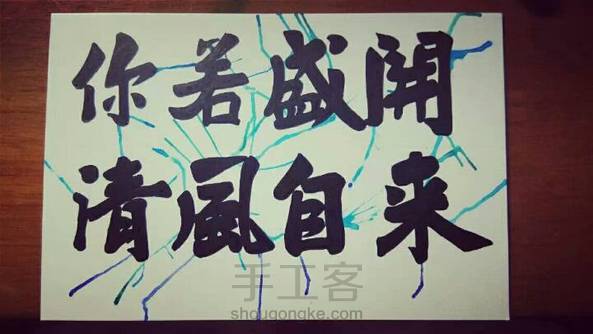 你若盛開
清風自来
手工客
shougongke.com